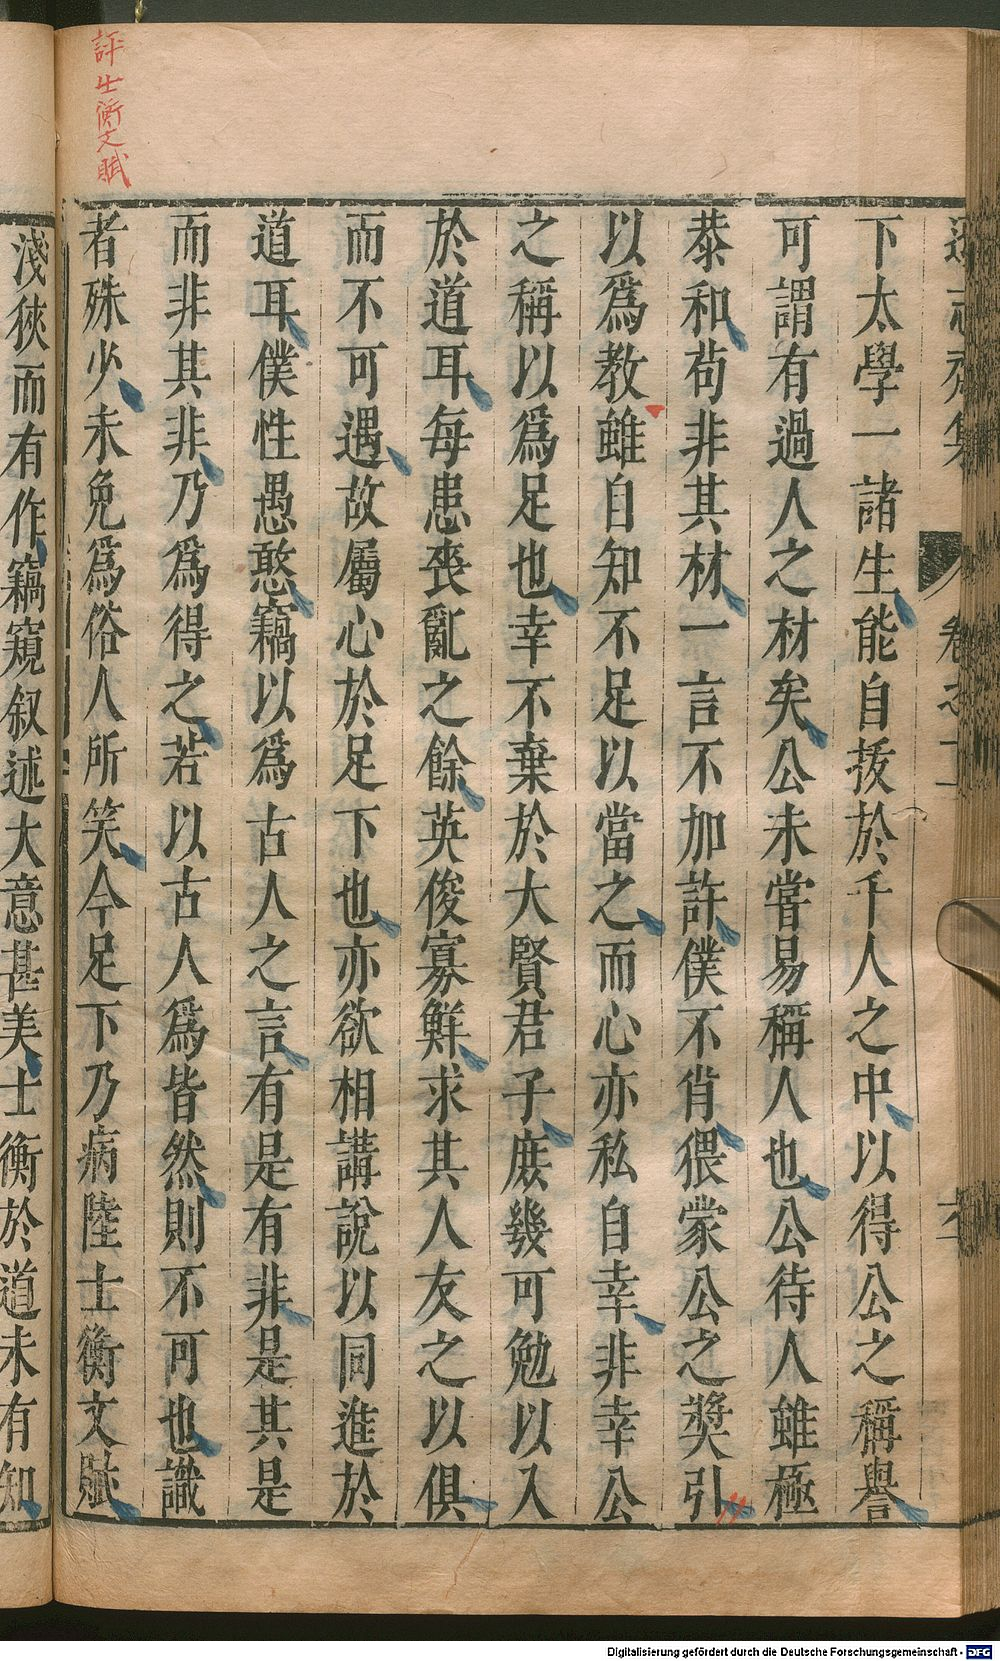 評士衡文賦
遜志齋集 卷之十一 六
下太學一諸生能自拔於千人之中以得公之稱譽
可謂有過人之材矣公未嘗易稱人也公待人雖極
㳟和苟非其材一言不加許僕不肖猥蒙公之獎引
以爲教雖自知不足以當之而心亦私自幸非幸公
之稱以爲足也幸不棄於大賢君子庶幾可勉以入
於道耳每患喪亂之餘英俊寡鮮求其人友之以俱
而不可遇故屬心於足下也亦欲相講說以同進於
道耳僕性愚憨竊以爲古人之言有是有非是其是
而非其非乃爲得之若以古人爲皆然則不可也識
者殊少未免爲俗人所笑今足下乃病陸士衡文賦
淺狹而有作竊窺叙述大意甚美士衡於道未有知
Digitalisierung gefördert durch die Deutsche Forschungsgemeinschaft - DFG